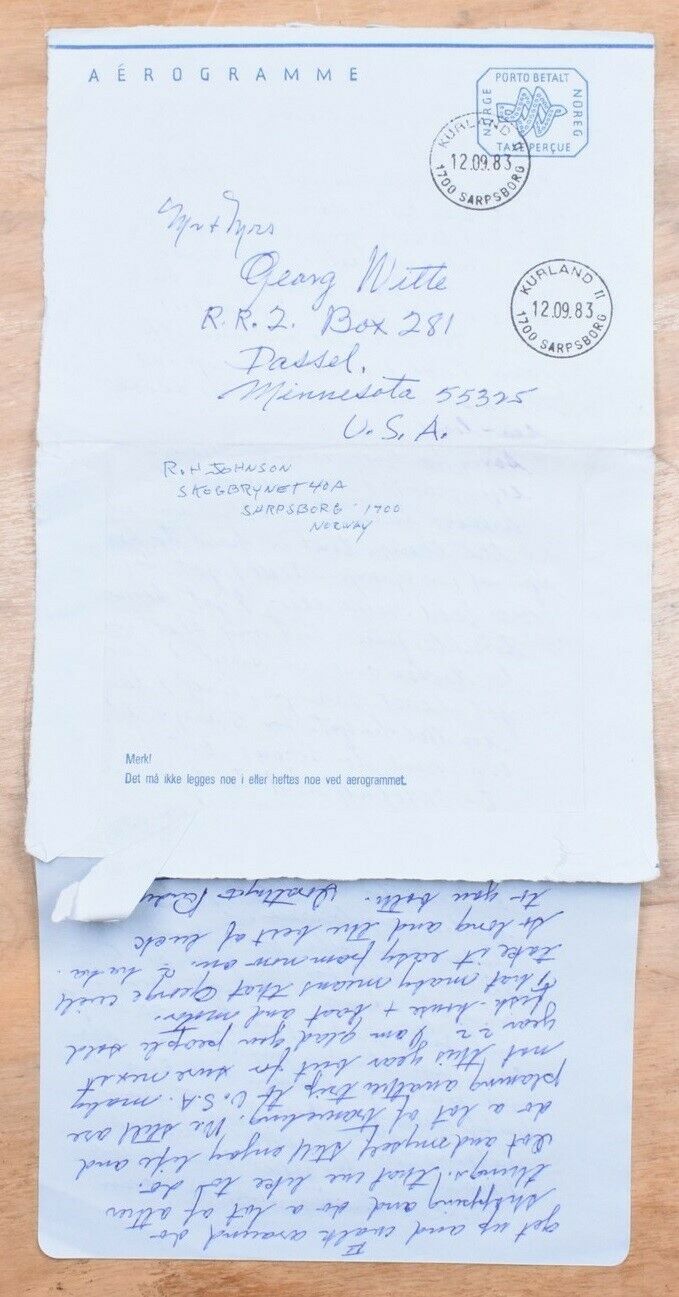 AÉROGRAMME
PORTO BETALT
NORGE
NOREG
TAXE PERÇUE
KURLAND II
12.09.83
1700 SARPSBORG
KURLAND II
12.09.83
1700 SARPSBORG
Mr + Mrs
Georg Witte
R.R.2. Box 281
Dassel,
Minnesota 55325
U.S.A.
R.H JOHNSON
SKOGBRYNET 40A
SARPSBORG 1700
NORWAY
Merk!
Det må ikke legges noe i eller heftes noe ved aerogrammet.
II
get up and walk around do
shopping and do a lot of other
things that we like to do.
Dot and myself still enjoy life and
do a lot of traveling. We still are
planing another trip to U.S.A. maby
not this year but for sure next
year 22 I am glad you people sold
fish-house + boat and motor.
That maby means that George will
take it easy from now on.
So long and the best of luck
to you both.